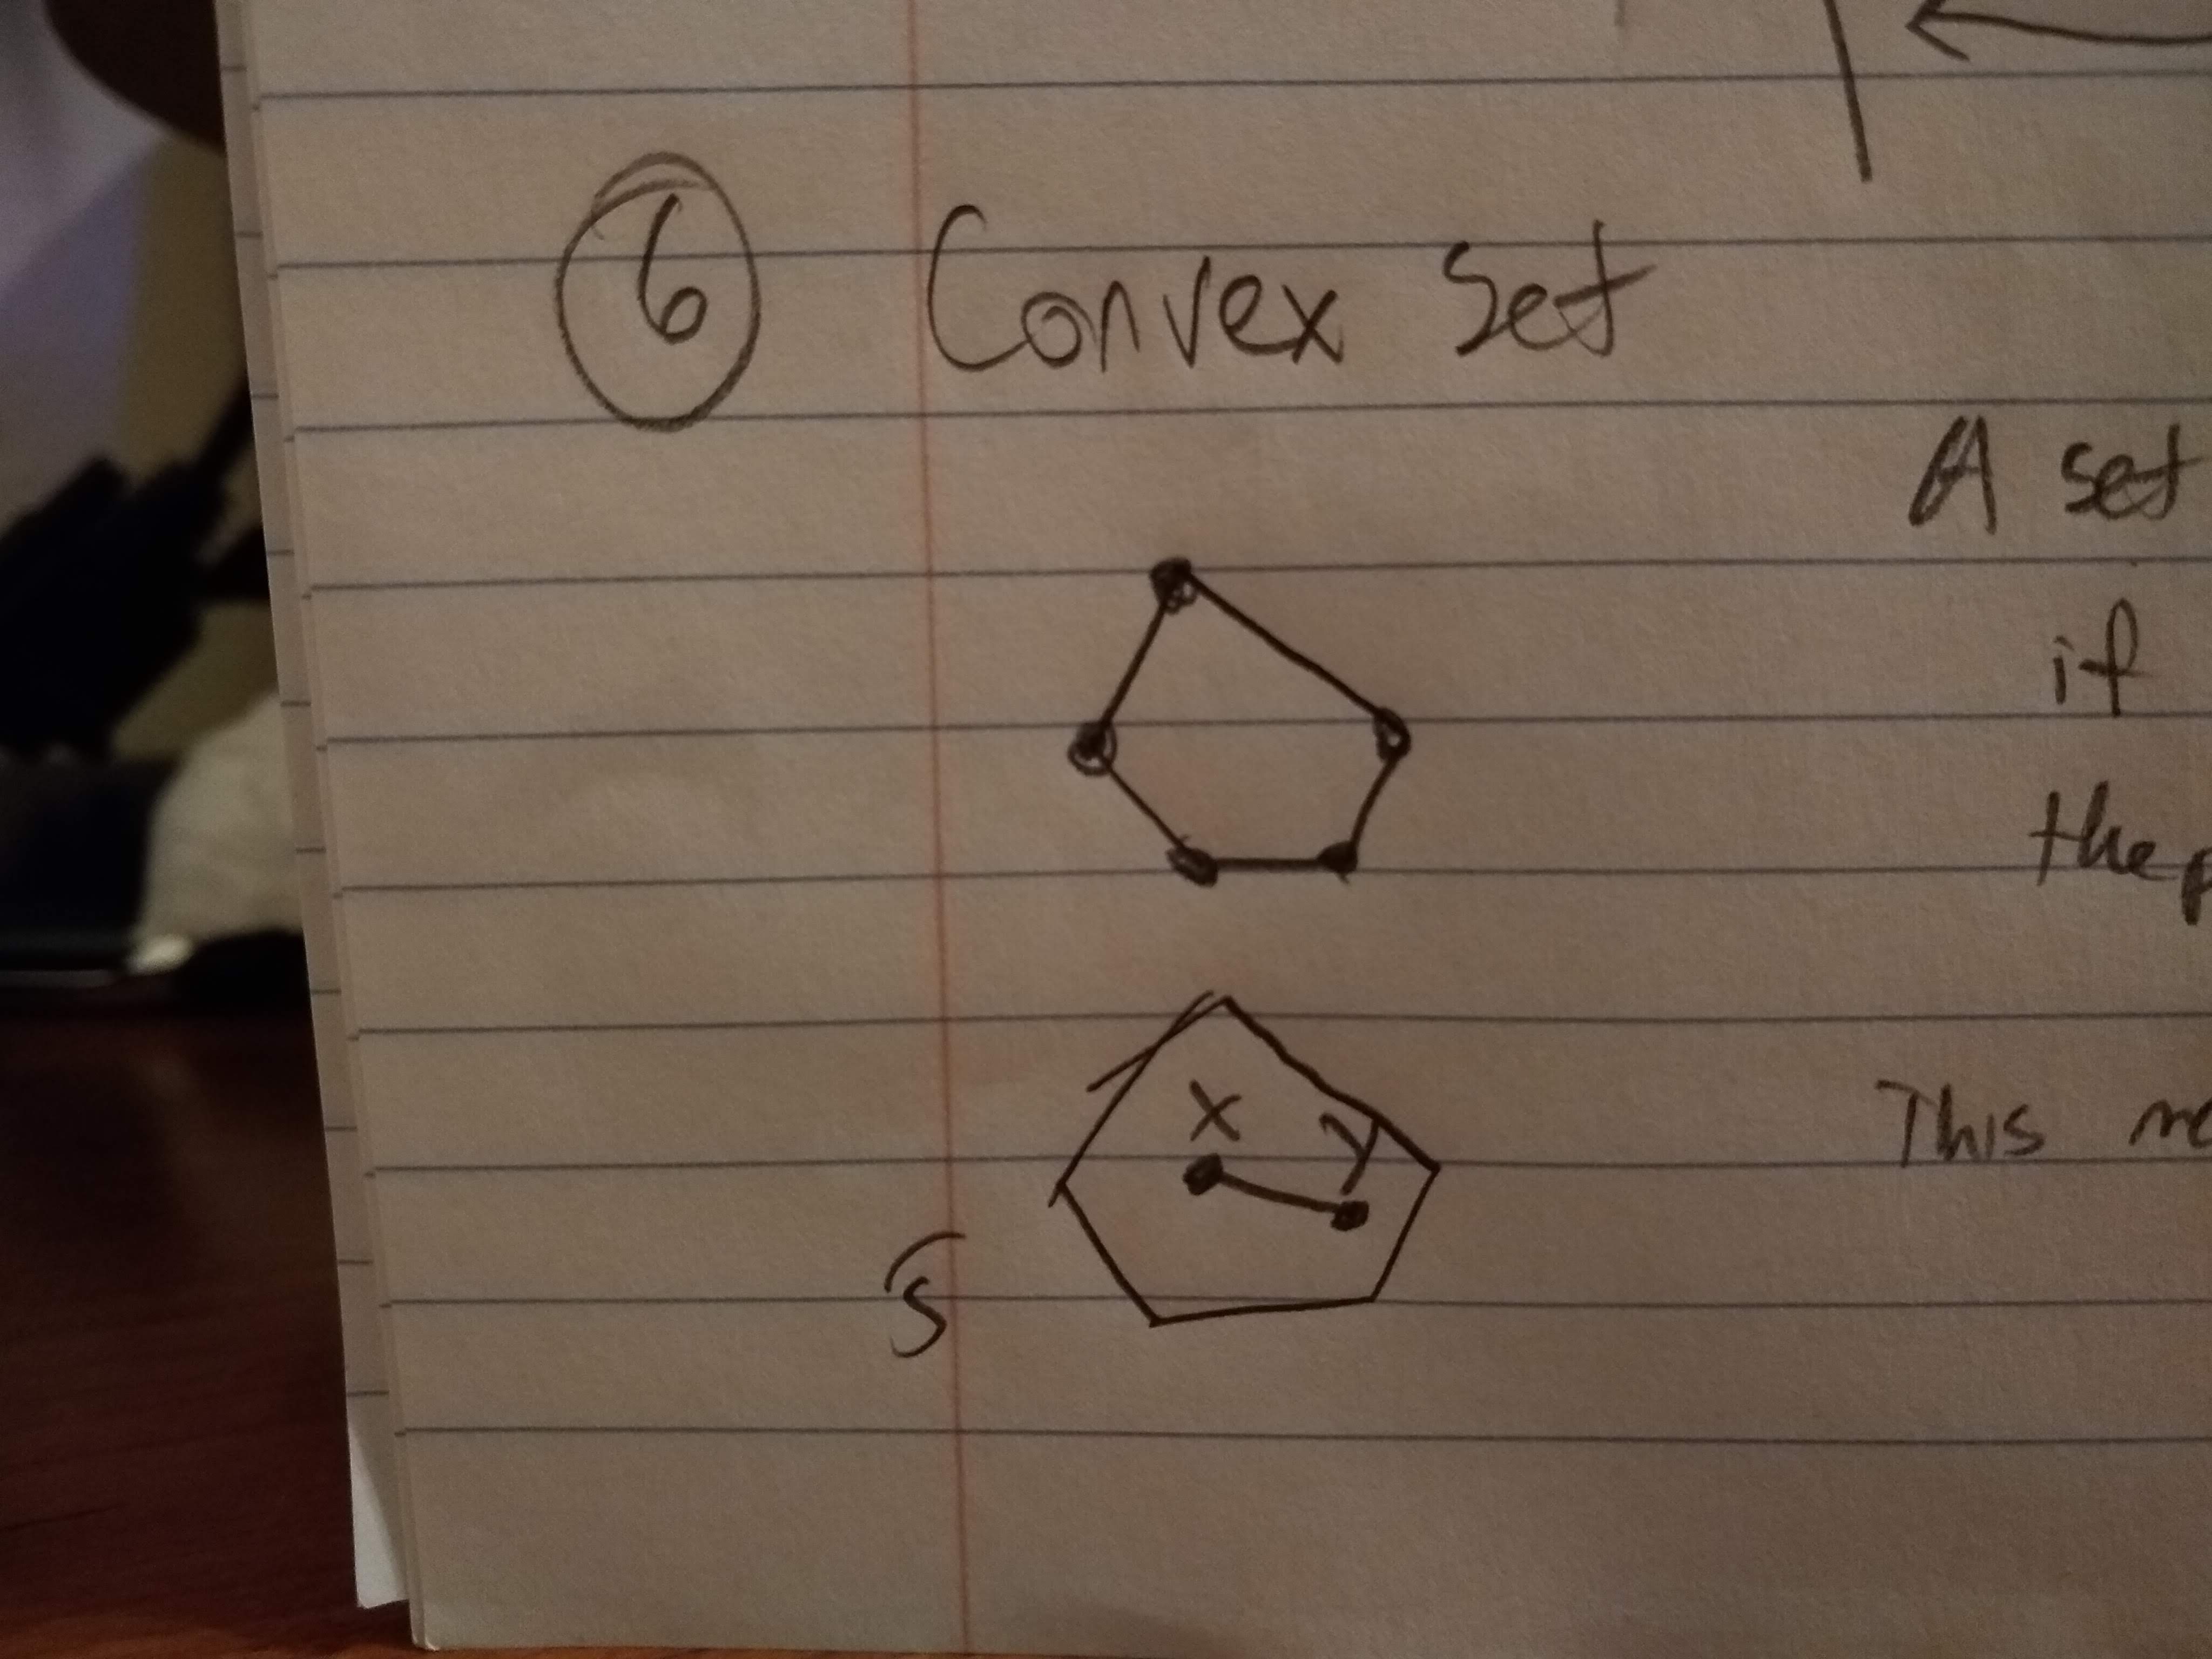 6 Convex Set
A set
if
the
X
y
This
S